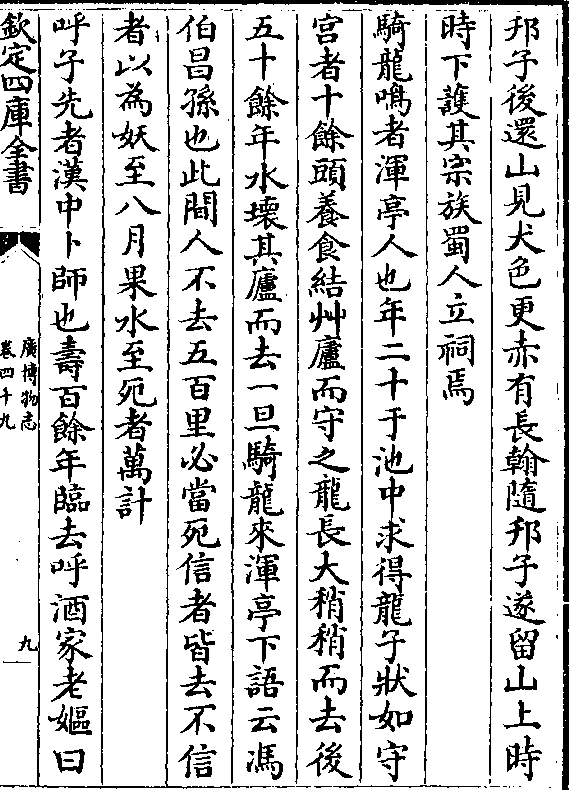 邦子後還山見犬色更赤有長翰隨邦子遂留山上時
時下護其宗族蜀人立祠焉
騎龍鳴者渾亭人也年二十于池中求得龍子狀如守
宫者十餘頭養食結艸廬而守之龍長大稍稍而去後
五十餘年水壊其廬而去一旦騎龍來渾亭下語云馮
伯昌孫也此間人不去五百里必當死信者皆去不信
者以為妖至八月果水至死者萬計
呼子先者漢中卜師也壽百餘年臨去呼酒家老嫗曰
欽定四庫全書
廣博物志
卷四十九
九